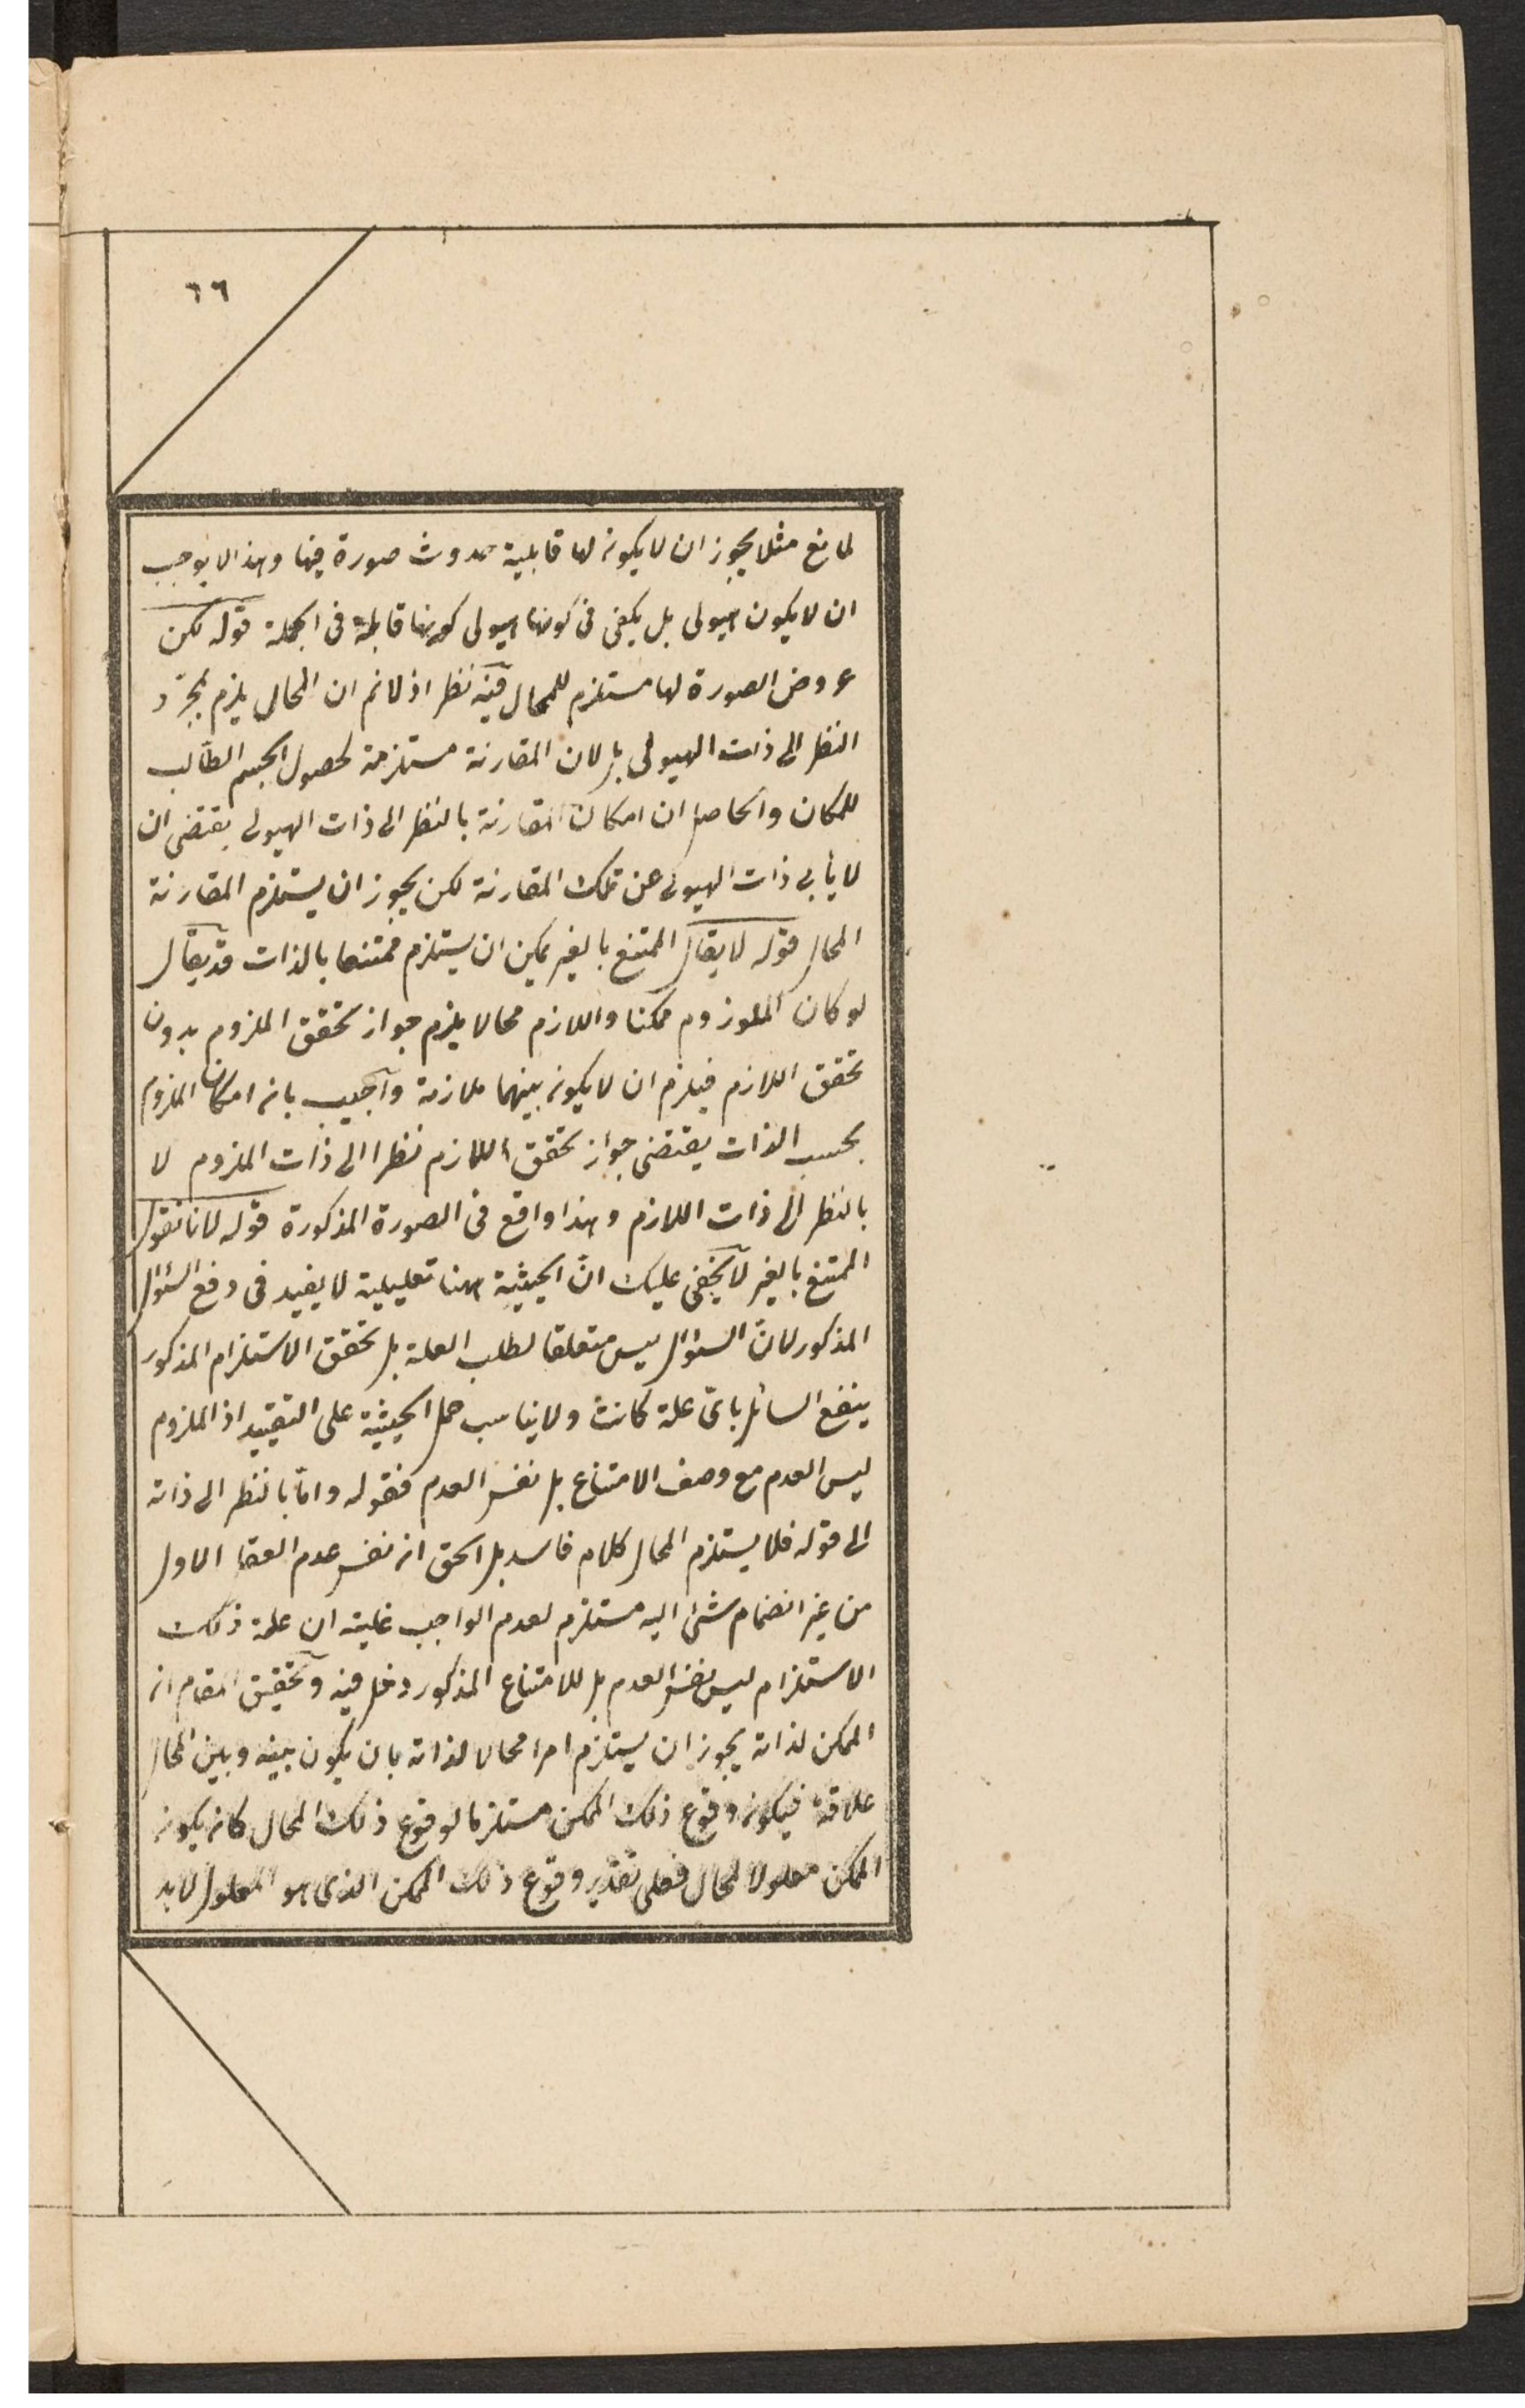 ٦٦
لمانع مثلا يجوز ان لا يكون لها قابلية حدوث صورة فيها وهذا لا يوجب
ان لا يكون هيولى بل يكفى فى كونها هيولى كونها قابلة فى الجملة قوله لكن
عروض الصورة لها مستلزم للمحال فيه نظر اذ لا نم ان المحال يلزم بمجرّد
النظر الى ذات الهيولى بل لان المقارنة مستلزمة لحصول الجسم الطالب
للمكان والحاصل ان امكان المقارنة بالنظر الى ذات الهيولى يقتضى ان
لا يأبى ذات الهيولى عن تلك المقارنة لكن يجوز ان يستلزم المقارنة
المحال قوله لا يقال الممتنع بالغير يمكن ان يستلزم ممتنعا بالذات قد يقال
لو كان الملوزوم ممكنا واللازم محالا يلزم جواز تحقق الملزوم بدون
تحقق اللازم فيلزم ان لا يكون بينهما ملازمة وأجيب بانه امكان الملزوم
بحسب الذات يقتضى جواز تحقق اللازم نظرا الى ذات الملزوم لا
بالنظر الى ذات اللازم وهذا واقع فى الصورة المذكورة قوله لانا نقول
الممتنع بالغير لا يخفى عليك انّ الحيثية ههنا تعليلية لا يفيد فى دفع السئوال
المذكور لانّ السئوال ليس متعلقا لطلب العلة بل تحقق الاستلزام المذكور
ينفع السائل باىّ علة كانت ولا يناسب حمل الحيثية على التقييد اذ الملزوم
ليس العدم مع وصف الامتناع بل نفس العدم فقوله وامّا بالنظر الى ذاته
الى قوله فلا يستلزم المحال كلام فاسد بل الحق انه نفس عدم العقل الاول
من غير انضمام شئ اليه مستلزم لعدم الواجب غايته ان علة ذلك
الاستلزام ليس نفس العدم بل للامتناع المذكور دخل فيه وتحقيق المقام انه
الممكن لذاته يجوز ان يستلزم امرا محالا لذاته بان يكون بينه وبين المحال
علاقة فيكون وقوع ذلك الممكن مستلزما لوقوع ذلك المحال كانه يكون
الممكن معلولا لمحال فعلى تقدير وقوع ذلك الممكن الذى هو المعلول لا بد